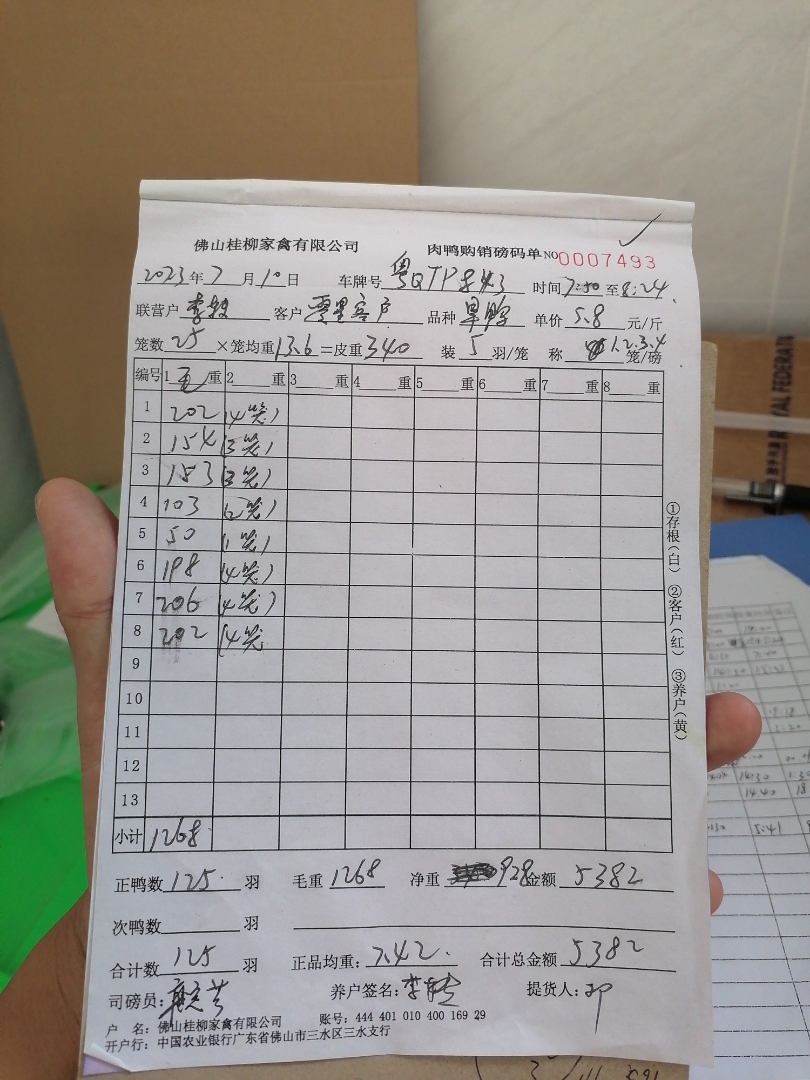 佛山桂柳家禽有限公司 肉鸭购销磅码单 NO 0007493
2023年7月10日 车牌号 粤QTP 时间 7:50 至 8:24
联营户 李 客户 客户 品种 单价 5.8 元/斤
笼数 25 ×笼均重 13.6 =皮重 340 装 5 羽/笼 称 1.2.3.4 笼/磅
编号 1 毛 重 2 重 3 重 4 重 5 重 6 重 7 重 8 重
1 202 (4笼)
2 154 (3笼)
3 153 (3笼)
4 103 (2笼)
5 50 (1笼)
6 198 (4笼)
7 206 (4笼)
8 202 (4笼
9
10
11
12
13
小计 1268
正鸭数 125 羽 毛重 1268 净重 928 金额 5382
次鸭数 羽
合计数 125 羽 正品均重: 7.42 合计总金额 5382
司磅员: 养户签名: 李 提货人:
户 名: 佛山桂柳家禽有限公司 账号: 444 401 010 400 169 29
开户行: 中国农业银行广东省佛山市三水区三水支行
①存根(白) ②客户(红) ③养户(黄)
ROYAL FEDERATION
14:30
14:40 18
5:41